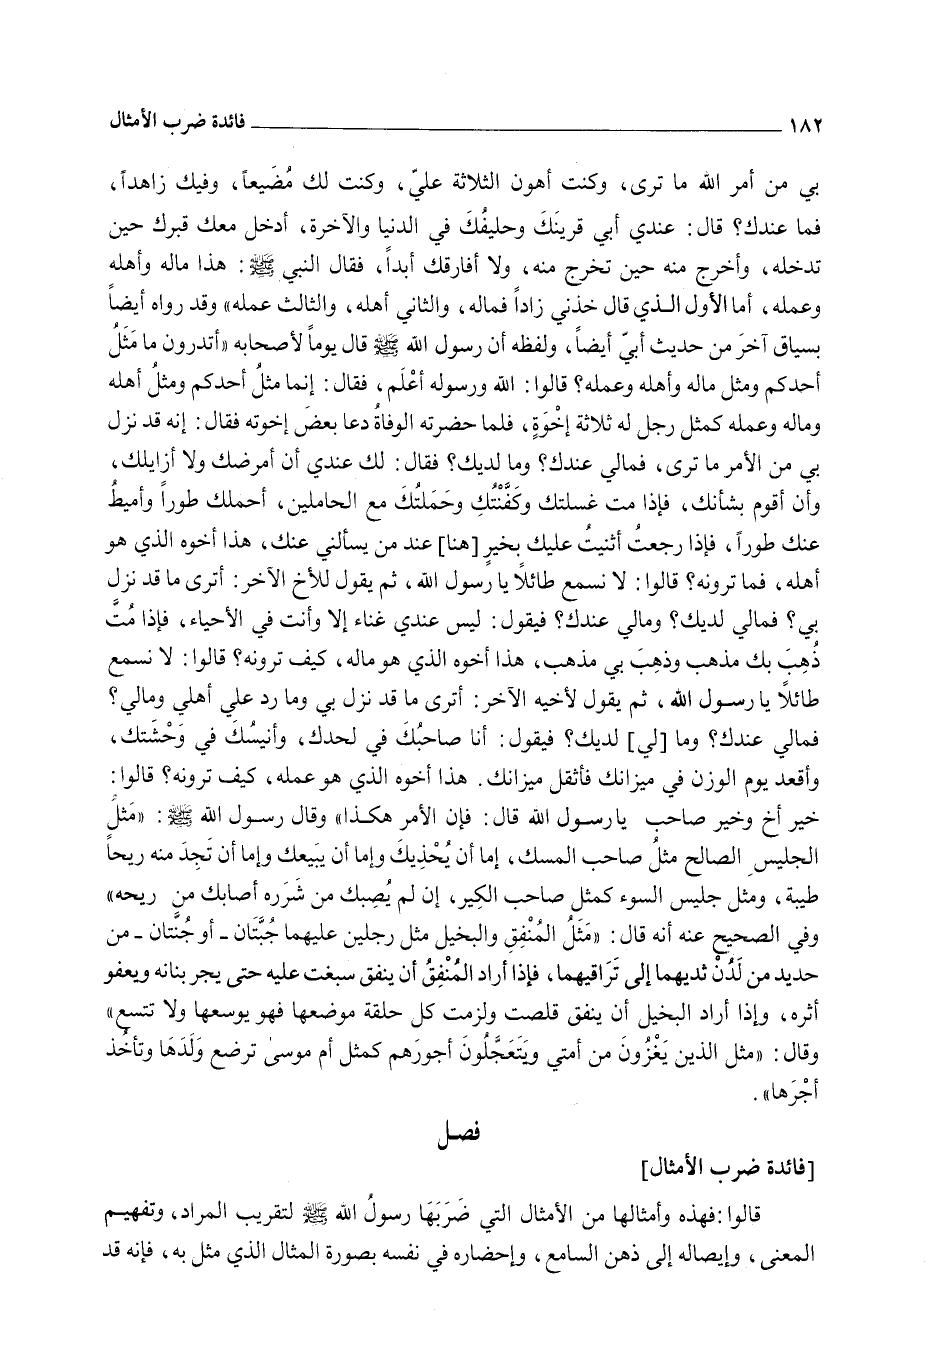 ١٨٢ ــــــــــــــــــــ فائدة ضرب الأمثال
بي من أمر الله ما ترى، وكنت أهون الثلاثة عليّ، وكنت لك مُضَيعاً، وفيك زاهداً،
فما عندك؟ قال: عندي أبي قرينَكَ وحليفُكَ في الدنيا والآخرة، أدخل معك قبرك حين
تدخله، وأخرج منه حين تخرج منه، ولا أفارقك أبداً، فقال النبي ﷺ: هذا ماله وأهله
وعمله، أما الأول الـذي قال خذني زاداً فماله، والثاني أهله، والثالث عمله» وقد رواه أيضاً
بسياق آخرَ من حديث أبيّ أيضاً، ولفظه أن رسول الله ﷺ قال يوماً لأصحابه «أتدرون ما مَثَلُ
أحدكم ومثل ماله وأهله وعمله؟ قالوا: الله ورسوله أعْلَم، فقال: إنما مثلُ أحدكم ومثلُ أهله
وماله وعمله كمثل رجل له ثلاثة إخْوَةٍ، فلما حضرته الوفاةُ دعا بعضَ إخوته فقال: إنه قد نزل
بي من الأمر ما ترى، فمالي عندك؟ وما لديك؟ فقال: لك عندي أن أمرضك ولا أزايلك،
وأن أقوم بشأنك، فإذا مت غسلتك وكَفَّنْتُكِ وحَمَلتُكَ مع الحاملين، أحملك طوراً وأميطُ
عنك طوراً، فإذا رجعتُ أثنيتُ عليك بخيرٍ [هنا] عند من يسألني عنك، هذا أخوه الذي هو
أهله، فما ترونه؟ قالوا: لا نسمع طائلًا يا رسول الله، ثم يقول للأخ الآخر: أترى ما قد نزل
بي؟ فمالي لديك؟ ومالي عندك؟ فيقول: ليس عندي غناء إلا وأنت في الأحياء، فإذا مُتَّ
ذُهِبَ بك مذهب وذهِبَ بي مذهب، هذا أخوه الذي هو ماله، كيف ترونه؟ قالوا: لا نسمع
طائلًا يا رسـول الله، ثم يقول لأخيه الآخر: أترى ما قد نزل بي وما رد علي أهلي ومالي؟
فمالي عندك؟ وما [لي] لديك؟ فيقول: أنا صاحبُكَ في لحدك، وأنيسُكَ في وَحْشَتك،
وأقعد يوم الوزن في ميزانك فأثقل ميزانك. هذا أخوه الذي هو عمله، كيف ترونه؟ قالوا:
خير أخ وخير صاحب يا رسـول الله قال: فإن الأمر هكـذا» وقال رسـول الله ﷺ: «مَثَلُ
الجليس الصالح مثلُ صاحب المسك، إما أن يُحْذِيكَ وإما أن يَبِيعك وإما أن تَجِدَ منه ريحاً
طيبة، ومثل جليس السوء كمثل صاحب الكير، إن لم يُصِبك من شَرَره أصابك من ريحه»
وفي الصحيح عنه أنه قال: «مَثَلُ المُنْفِقِ والبخيل مثل رجلين عليهما جُبَّتَان ـ أو جُنَّتان ـ من
حديد من لَدُنْ ثديهما إلى تَرَاقيهما، فإذا أراد المُنْفِقُ أن ينفق سبغت عليه حتى يجر بنانه ويعفو
أثره، وإذا أراد البخيل أن ينفق قلصت ولزمت كل حلقة موضعها فهو يوسعها ولا تتسع»
وقال: «مثل الذين يَغْزُونَ من أمتي ويَتَعَجَّلُونَ أجورَهم كمثل أم موسىٰ ترضع وَلَدَهَا وتأخُذ
أجْرَها».
فصـل
[فائدة ضرب الأمثال]
قالوا: فهذه وأمثالها من الأمثال التي ضَرَبَهَا رسولُ الله ﷺ لتقريب المراد، وتفهيـم
المعنى، وإيصاله إلى ذهن السامع، وإحضاره في نفسه بصورة المثال الذي مثل به، فإنه قد